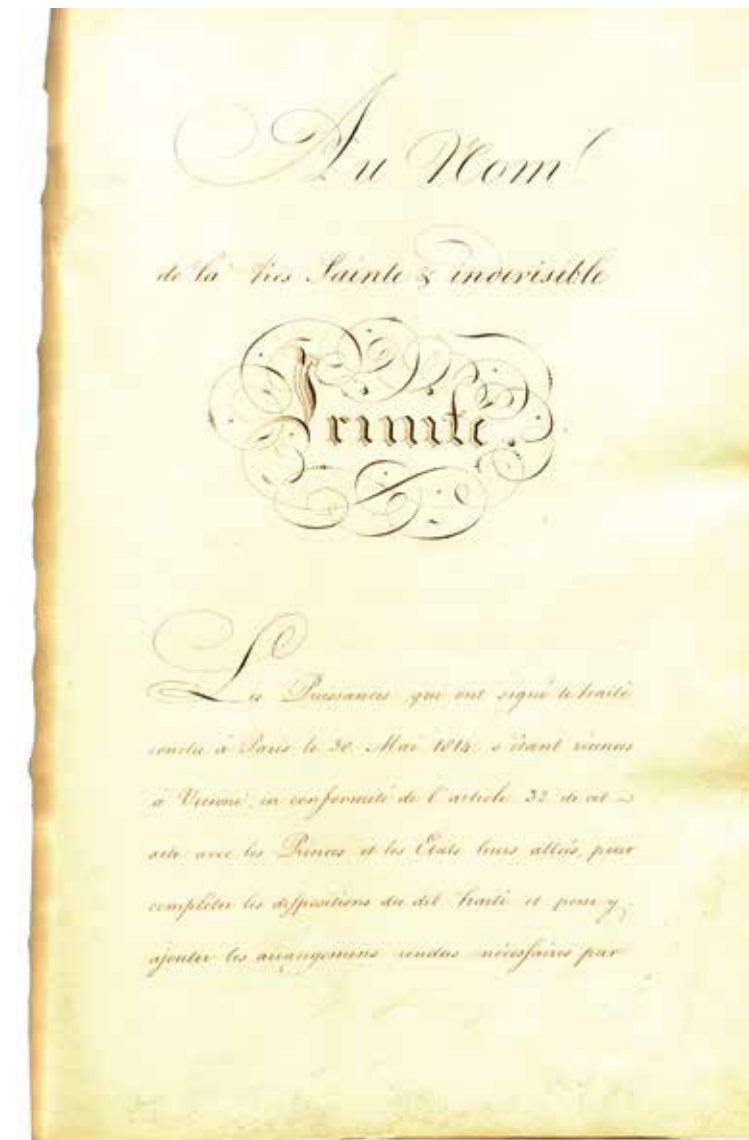 Au Nom
de la très Sainte & indivisible
Trinité.
Les Puissances qui ont signé le traité
conclu à Paris le 30 Mai 1814 s'étant réunies
à Vienne, en conformité de l'article 32 de cet
acte avec les Princes et les États leurs alliés, pour
compléter les dispositions du dit traité et pour y
ajouter les arrangemens rendus nécessaires par